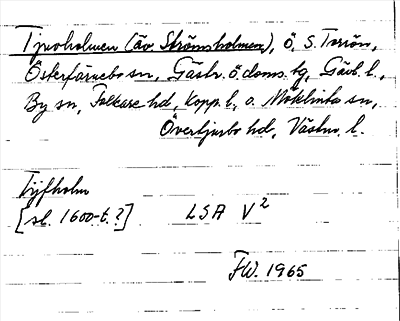 Tjuvholmen (äv. Strömsholmen), ö, S. Torrön,
Österfärnebo sn, Gästr. ö. doms. tg, Gävl. l.,
By sn, Folkare hd, Kopp. l., o. Möklinta sn,
Övertjurbo hd, Västm. l.
Tijfholm
[sl. 1600-t.?] LSA V²
FW. 1965